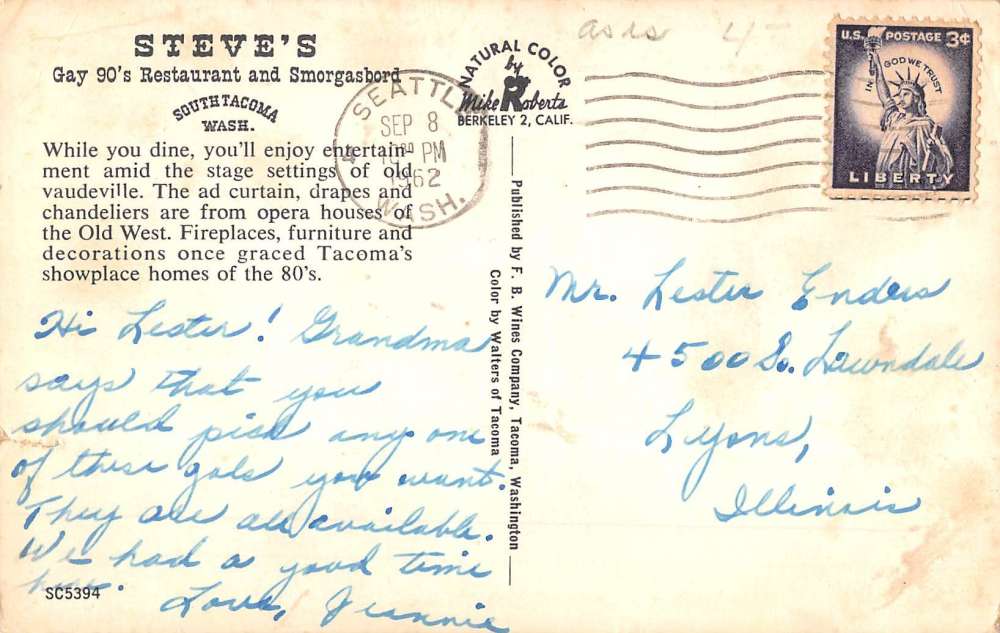 STEVE'S
Gay 90's Restaurant and Smorgasbord
SOUTH TACOMA
WASH.
While you dine, you'll enjoy entertain-
ment amid the stage settings of old
vaudeville. The ad curtain, drapes and
chandeliers are from opera houses of
the Old West. Fireplaces, furniture and
decorations once graced Tacoma's
showplace homes of the 80's.
Hi Lester! Grandma
says that you
should pick any one
of these gals you want.
They are all available.
We had a good time
here.
Love, Jeannie
SC5394
NATURAL COLOR
by
Mike Roberts
BERKELEY 2, CALIF.
SEATTLE
SEP 8
PM
1962
WASH.
Published by F. B. Wines Company, Tacoma, Washington
Color by Walters of Tacoma
as is 4-
U.S. POSTAGE 3¢
IN GOD WE TRUST
LIBERTY
Mr. Lester Enders
4500 So. Lawndale
Lyons,
Illinois